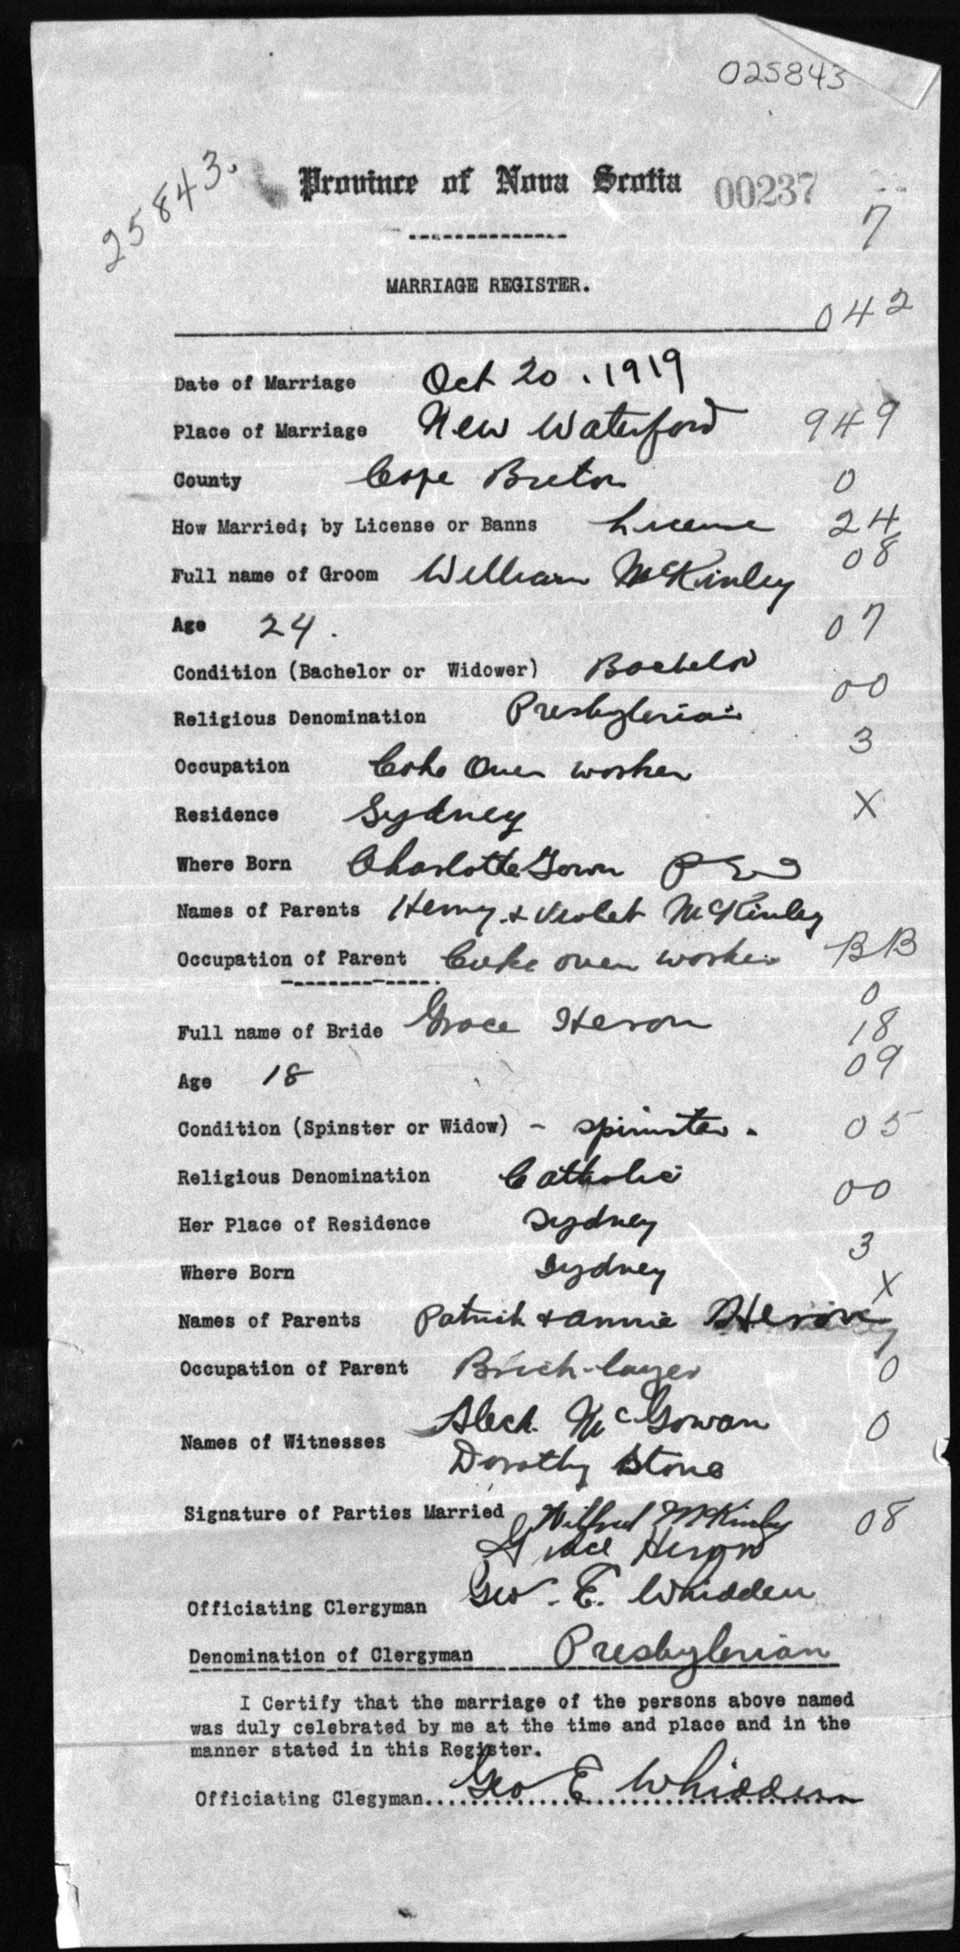 025843
25843.
Province of Nova Scotia 00237
7
MARRIAGE REGISTER.
042
Date of Marriage Oct 20, 1919
Place of Marriage New Waterford 949
County Cape Breton 0
How Married; by License or Banns License 24
08
Full name of Groom William McKinley
Age 24. 07
Condition (Bachelor or Widower) Bachelor
00
Religious Denomination Presbyterian
3
Occupation Coke Oven worker
Residence Sydney X
Where Born CharlotteTown P E I
Names of Parents Henry & Violet McKinley
Occupation of Parent Coke oven worker BB
0
Full name of Bride Grace Heron 18
Age 18 09
Condition (Spinster or Widow) - spinster. 05
Religious Denomination Catholic
00
Her Place of Residence Sydney
3
Where Born Sydney
X
Names of Parents Patrick & Annie Heron
7
Occupation of Parent Brick-layer 0
Names of Witnesses Alech. McGowan 0
Dorothy Stone
Signature of Parties Married Wilfred McKinley 08
Grace Heron
Officiating Clergyman Geo. E. Whidden
Denomination of Clergyman Presbyterian
I Certify that the marriage of the persons above named
was duly celebrated by me at the time and place and in the
manner stated in this Register.
Officiating Clegyman Geo E Whidden